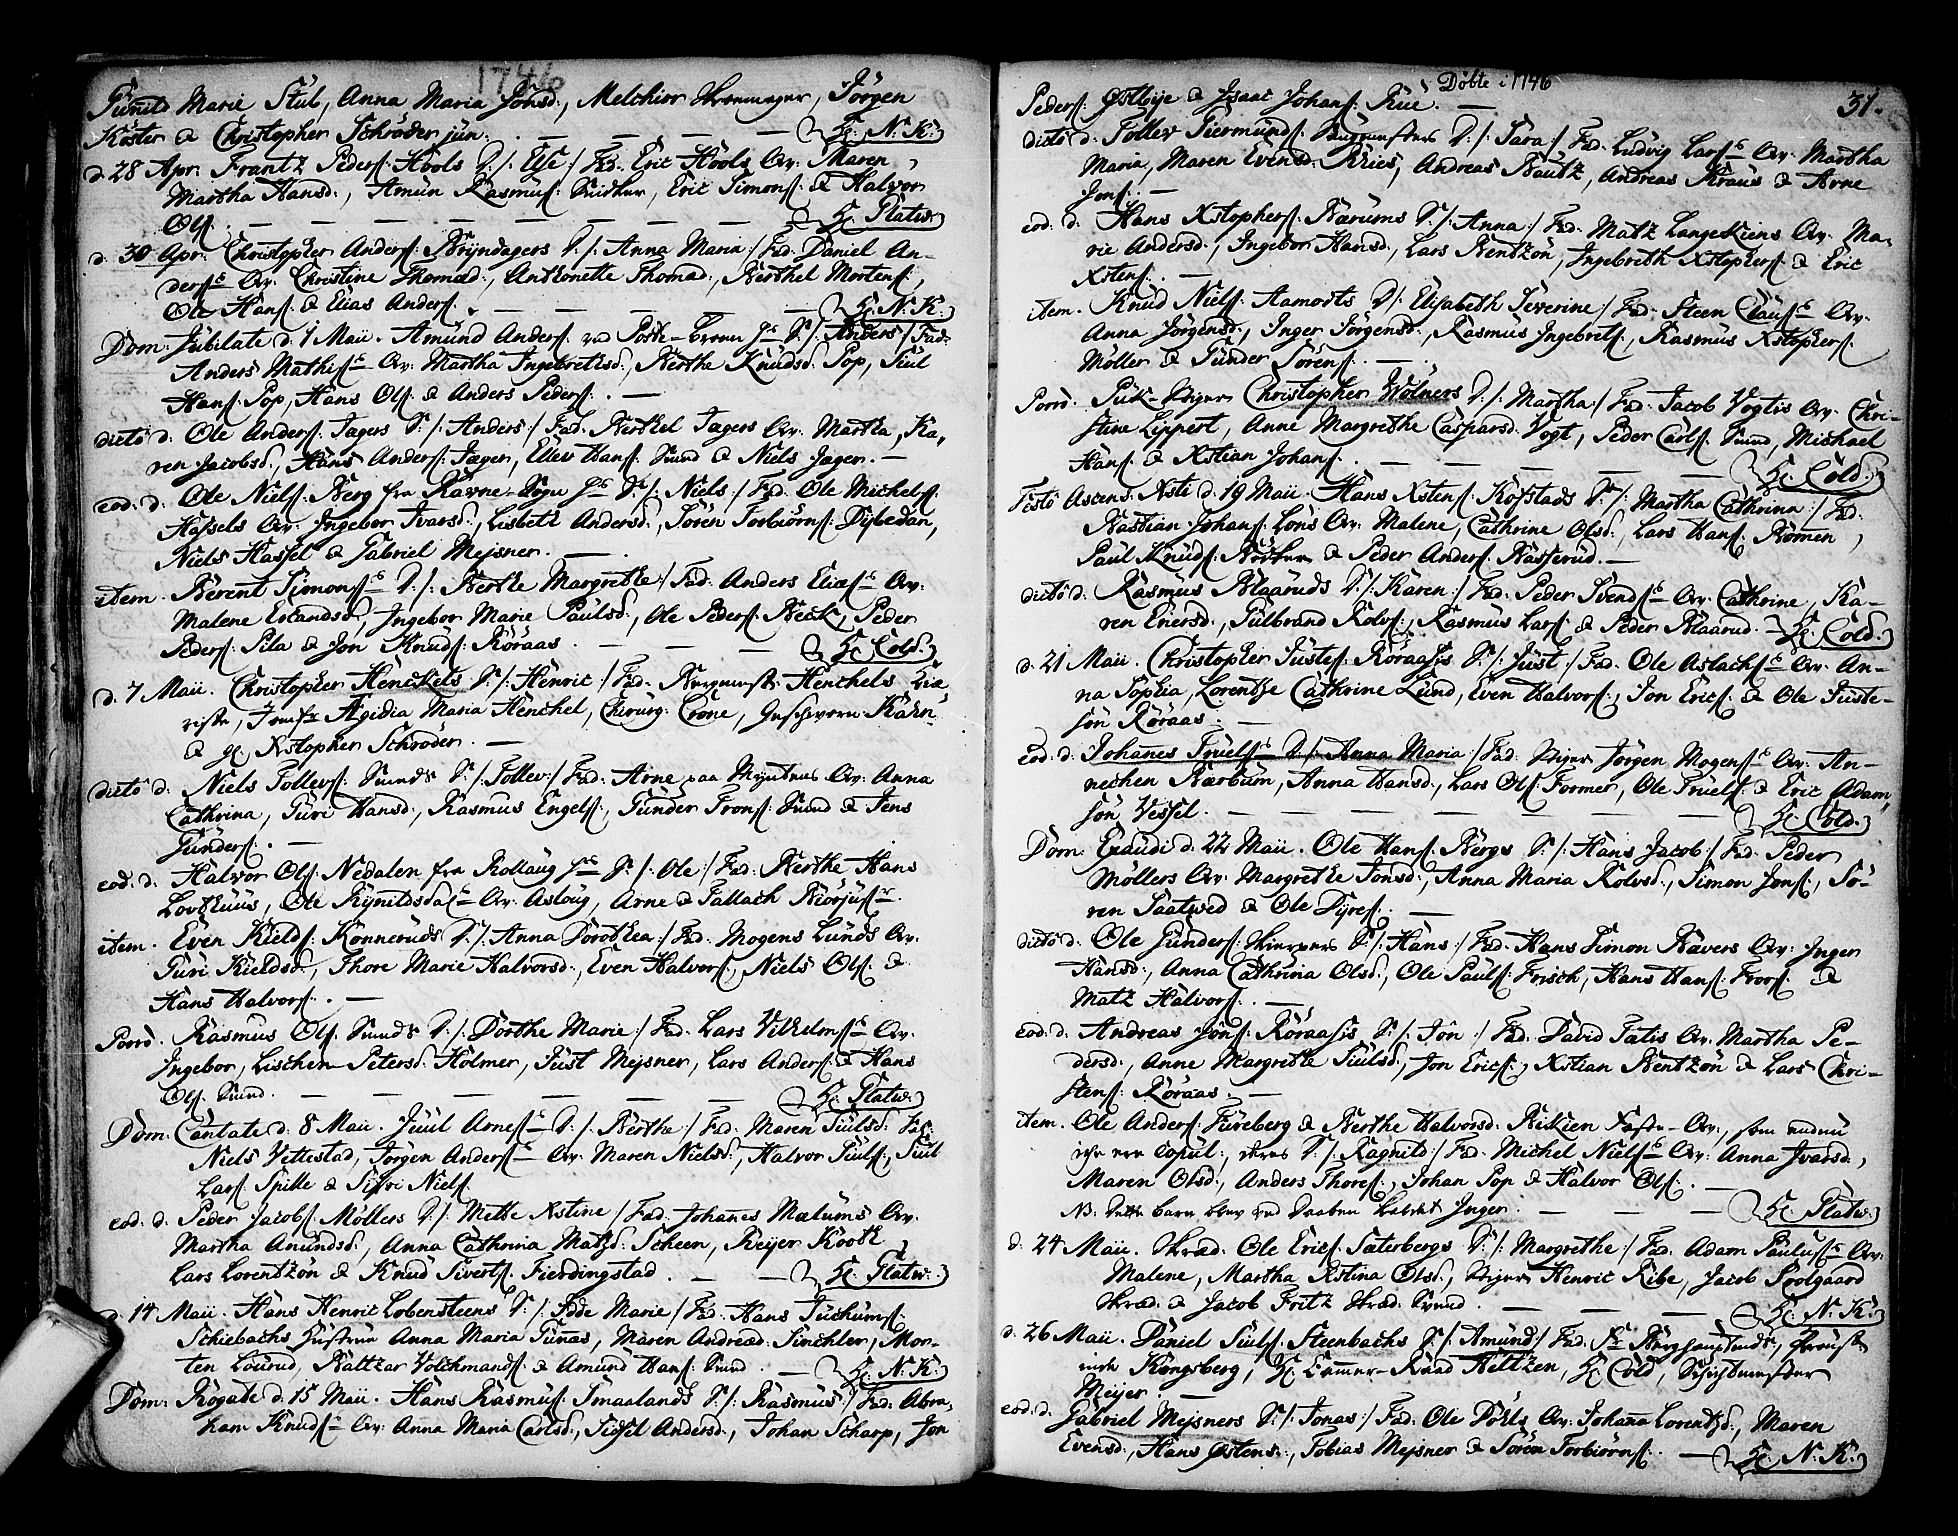 1746
Gunild Marie Stub, Anna Maria Johsd:, Melchior Kronmeyer, Jörgen
Köster & Christopher Schröder jun. — — — H: N. K:
d. 28 Apr. Frantz Peders: Hools D:/: Else:/ Fad. Eric Hools Qv: Maren,
Martha Hansd:, Amun Rasmus: Snidker, Eric Simons: & Halvor
Ols: — — — — — — H: Platw:
d. 30 Apr. Christopher Anders: Bryndagers D:/: Anna Maria:/ Fad. Daniel An-
ders: Qv: Christine Thomæd:, Anthonette Thomæd:, Berthel Mortens:,
Ole Hans: & Elias Anders: — — — — H: N. K:
Dom: Jubilate d. 1 Maii. Amund Anders: S:/: Anders:/ Fad.
Anders Mathis: Qv: Martha Ingebretsd:, Berthe Knudsd: Pop, Juul
Hans: Pop, Hans Ols: & Anders Peders: —
dicto d. Ole Anders: Jagers S:/: Anders:/ Fad. Berthel Jagers Qv: Martha, Ka-
ren Jacobsd:, Hans Anders: Jæger, Ellev Hans: Smed & Niels Jager. —
eod. d. Ole Niels: Berg fra Ravne- S:/: Niels:/ Fad. Ole Michels:
Hassels Qv: Ingebor Ivarsd:, Lisbeth Andersd:, Sören Torbiörns: Dybedan,
Niels Hassel & Gabriel Mejsner. —
item. Berent Simons: D:/: Berthe Margrethe:/ Fad. Anders Elias: Qv:
Malene Erlandsd:, Ingebor Marie Paulsd:, Ole Peders: Beck, Peder
Peders: Pila & Jon Knuds: Röraas. — — — H: Cold.
d. 7 Maii. Christopher Henckels S:/: Henric:/ Fad. Henchels
Jomfr Ægidia Maria Henchel, Chirurg: Crone, Geschworn: Kahn
& H: Xstopher Schröder. —
dicto d. Niels Tollevs: Smeds S:/: Tollev:/ Fad. Arne paa Mynten Qv: Anna
Cathrina, Turi Hansd:, Rasmus Engels:, Gunder Trons: Smed & Jens
Gunders: —
eod. d. Halvor Ols: Nedalen fra Rollaug S:/: Ole:/ Fad. Berthe Hans
Lovthuus, Ole Rynildsda: Qv: Aslaug, Arne & Tallach Biörjus:
item. Even Kields: Konneruds D:/: Anna Dorothea:/ Fad. Mogens Lunds Qv:
Turi Kieldsd:, Thore Marie Halvorsd:, Even Halvors:, Niels Ols: &
Hans Halvors: —
Porro. Rasmus Ols: Smeds D:/: Dorthe Marie:/ Fad. Lars Vilhelms: Qv:
Ingebor, Lischen Petersd: Holmer, Just Mejsner, Lars Anders: & Hans
Ols: Smed. — — — — — — H: Platw:
Dom: Cantate d. 8 Maii. Juul Arnes: D:/: Berthe:/ Fad. Maren Juulsd:
Niels Vettestad, Jörgen Anders: Qv: Maren Nielsd:, Halvor Juuls:, Juul
Lars: Spitte & Sifri Niels:
eod. d. Peder Jacobs: Möllers D:/: Mette Xstine:/ Fad. Johanes Mælums Qv:
Martha Amundsd:, Anna Cathrina Matzd: Scheen, Reijer Kooth,
Lars Lorentzön & Knud Siverts: Fierdingstad. — — H: Platw:
d. 14 Maii. Hans Henric Lobensteens D:/: Idde Marie:/ Fad. Hans Tuchums
Schiebachs Hustrue Anna Maria Tunas, Maren Andreæd: Sinchler, Mor-
ten Lourud, Baltzar Volchmands: & Amund Hans: Smed. — H: N. K:
Dom: Rogate d. 15 Maii. Hans Rasmus: Smaalands S:/: Rasmus:/ Fad. Abra-
ham Knuds: Qv: Anna Maria Carlsd:, Sidsel Andersd:, Johan Scharp, Jon
Döbte i 1746
31.
Peders: Östbye & Isaac Johans: Rue. —
dicto d. Tollev Giermunds: D:/: Sara:/ Fad. Ludvig Lars: Qv: Martha
Maria, Maren Evensd: Kries, Andreas Bautz, Andreas Kraus & Arne
Jons: —
eod. d. Hans Xstophers: Bærums D:/: Anna:/ Fad. Matz Langekiens Qv: Ma-
rie Andersd:, Ingebor Hansd:, Lars Bentzön, Ingebrith Xstophers: & Eric
Xstens: —
item. Knud Niels: Aamodts D:/: Elisabeth Severine:/ Fad. Steen Claus: Qv:
Anna Jörgensd:, Inger Jörgensd:, Rasmus Ingebrets:, Rasmus Xstophers:
Möller & Gunder Sörens: —
Porro. Puk-Stiger Christopher Wölners D:/: Martha:/ Fad. Jacob Vogtis Qv: Chri-
stine Lippert, Anne Margrethe Casparsd: Vogt, Peder Carls: Smed, Michael
Hans: & Xstian Johans: — — — — H: Cold.
Festo Ascens: Xsti d. 19 Maii. Hans Xstens: Kofstads D:/: Martha Cathrina:/ Fad.
Bastian Johans: Löns Qv: Malene, Cathrine Olsd:, Lars Hans: Römen,
Paul Knuds: Bödker & Peder Anders: Basserud. —
dicto d. Rasmus Blaaruds D:/: Karen:/ Fad. Peder Svends: Qv: Cathrine, Ka-
ren Enersd:, Gulbrand Rolvs:, Rasmus Lars: & Peder Blaarud. — H: Cold.
d. 21 Maii. Christopher Justes: Röraases S:/: Just:/ Fad. Ole Aslachs: Qv: An-
na Sophia, Lorentze Cathrine Lund, Even Halvors:, Jon Erics: & Ole Juste-
sön Röraas. —
eod. d. Johanes Truels: D:/: Anna Maria:/ Fad. Stiger Jörgen Mogens: Qv: An-
nechen Barbum, Anna Hansd:, Lars Ols: Former, Ole Truels: & Eric Adam-
sön Vessel. — — — — — — H: Cold.
Dom: Exaudi d. 22 Maii. Ole Hans: Bergs S:/: Hans Jacob:/ Fad. Peder
Möllers Qv: Margrethe Jonsd:, Anna Maria Rolvsd:, Simon Jons:, Sö-
ren Saatwed & Ole Dyres: —
dicto d. Ole Gunders: S:/: Hans:/ Fad. Hans Simon Bævers Qv: Inger
Hansd:, Anna Cathrina Olsd:, Ole Pauls: Frisch, Hans Hans: Froes: &
Matz Halvors: —
eod. d. Andreas Jöns: Röraasis S:/: Jön:/ Fad. David Tatis Qv: Martha Pe-
dersd:, Anne Margrethe Juulsd:, Jon Erics:, Xstian Bentzön & Lars Chri-
stens: Röraas: —
item. Ole Anders: Fureberg & Berthe Halvorsd: Bikien Fæste-Qv:, som endnu
iche ere Copul:, deres D:/: Ragnild:/ Fad. Michel Niels: Qv: Anna Ivarsd:,
Maren Olsd:, Anders Thores:, Johan Pop & Halvor Ols: —
NB. Dette barn blev ved Daaben kaldet Inger. — — — H: Platw:
d. 24 Maii. Skræd. Ole Erics: Sæterbergs D:/: Margrethe:/ Fad. Adam Paulus: Qv:
Malene, Martha Xstina Olsd:, Stiger Henric Ribe, Jacob Soolgaard
Skræd. & Jacob Fritz Skræd. Svend. — — — H: N. K:
d. 26 Maii. Daniel Juuls: Steenbachs S:/: Amund:/ Fad. Berghauptmds:,
Kongsberg, H: Cammer-Raad Heltzen, H: Cold, Schichtmester
Meyer. —
eod. d. Gabriel Mejsners S:/: Jonas:/ Fad. Ole Föhls Qv: Johana Lorentzd:, Maren
Evensd:, Hans Østens:, Tobias Mejsner & Sören Torbiörns: — H: N. K: